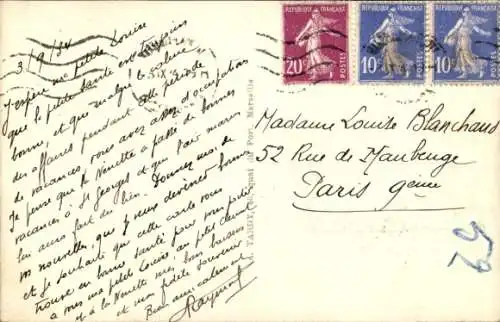 3/9/34
ma petite Louise
J'espère
que ta petite santé est toujours
bonne, et que malgré le calme
des affaires pendant cette période
de vacances vous avez assez d'occupations
Je pense que la Nénette a passé de bonnes
vacances à St Georges et que l'air marin
lui aura fait du bien. Donnez moi de
vos nouvelles, que j'y vous devinez bonnes
et je souhaite que cette carte vous
trouve en bonne santé pour vous petit
à vous ma petite Louise, au petit
et à la Nénette mes bons baisers
et mon fidèle souvenir
Bien amicalement
Raymond
TARDY
Port, Marseille
REPUBLIQUE FRANÇAISE
20c
POSTES
REPUBLIQUE FRANÇAISE
10c
POSTES
REPUBLIQUE FRANÇAISE
10c
POSTES
Madame Louise Blanchaud
52 Rue de Maubeuge
Paris 9ème